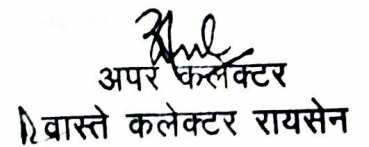 अपर कलेक्टर
वास्ते कलेक्टर रायसेन